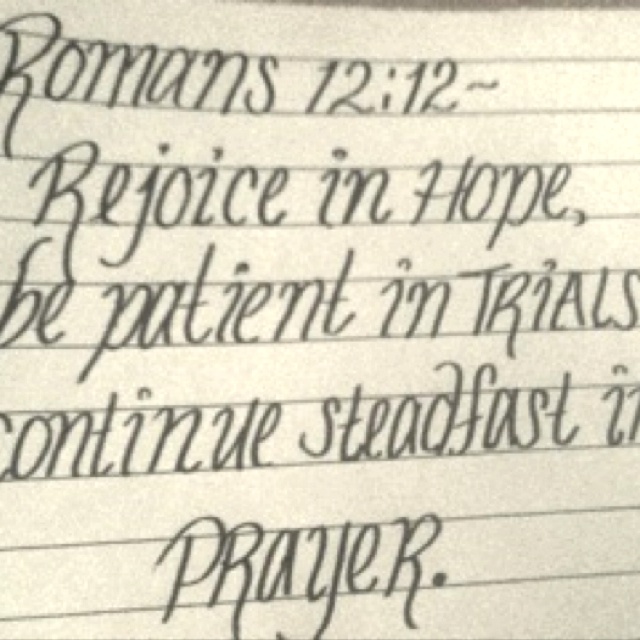 Romans 12:12~
Rejoice in Hope,
be patient in TRiALS
continue steadfast in
PRayeR.